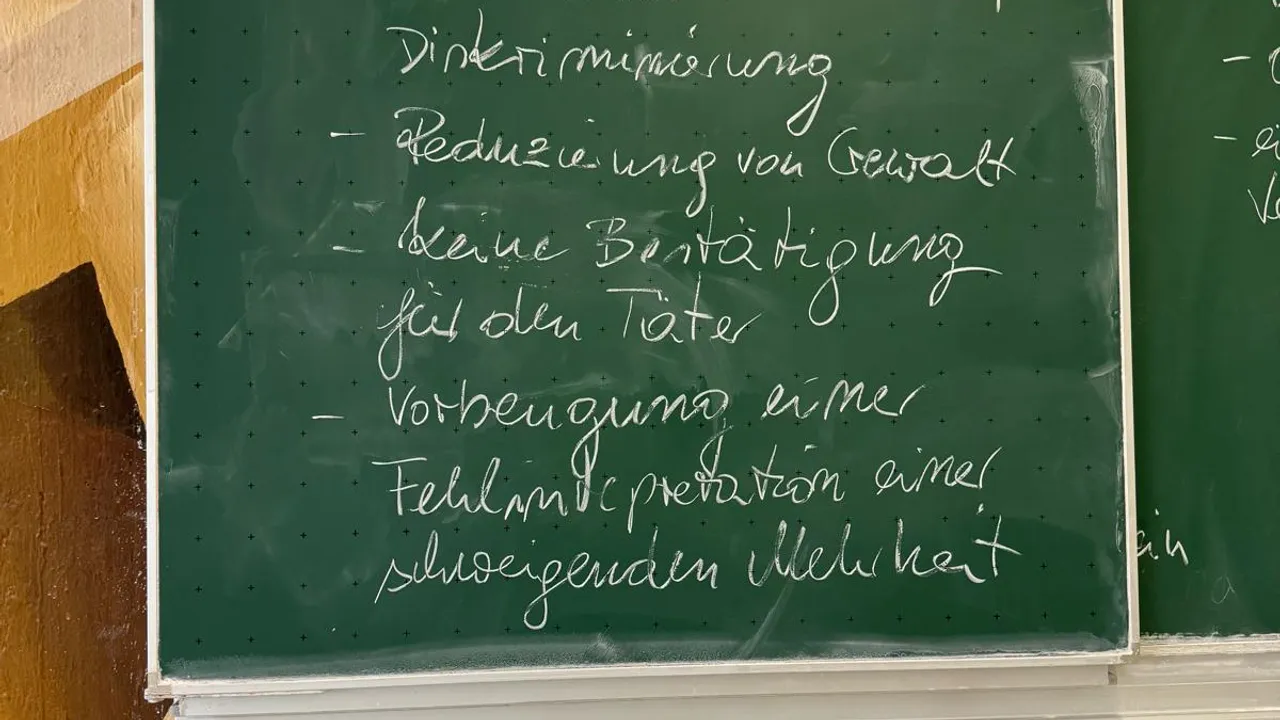 Diskriminierung
- Reduzierung von Gewalt
- keine Bestätigung
für den Täter
- Vorbeugung einer
Fehlinterpretation einer
schweigenden Mehrheit